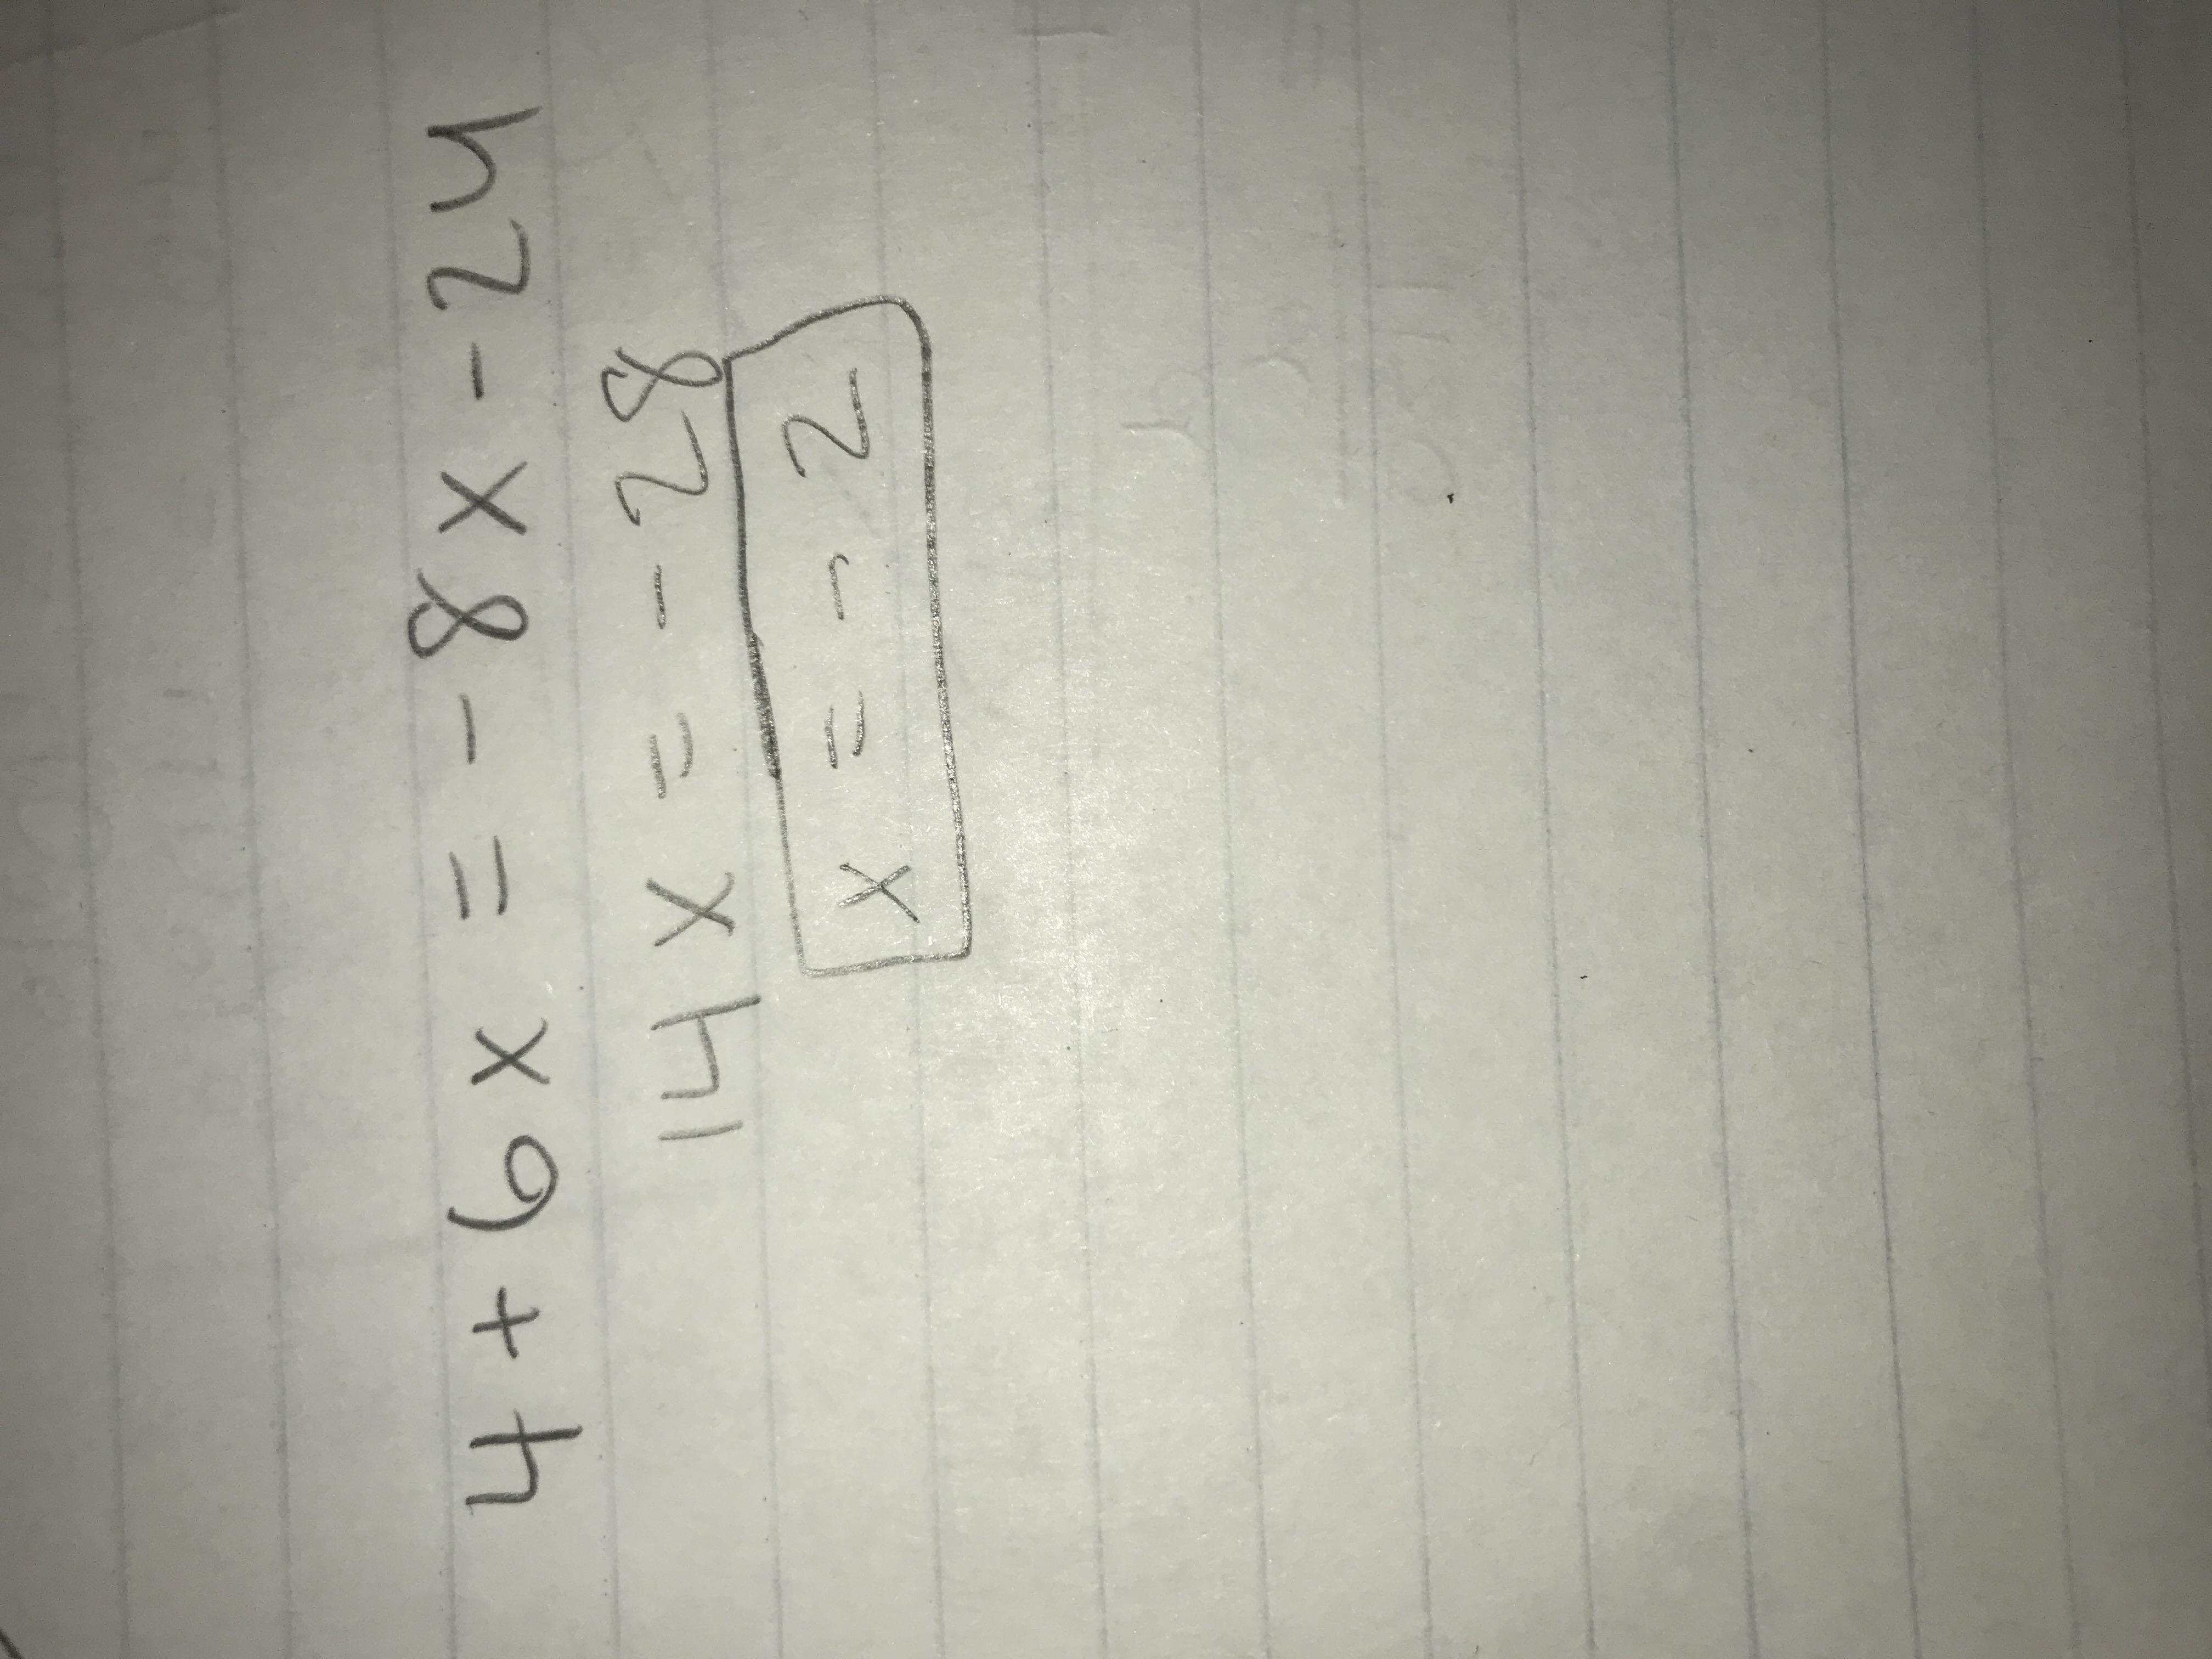 4 + 6x = - 8x - 24
14x = - 28
x = - 2